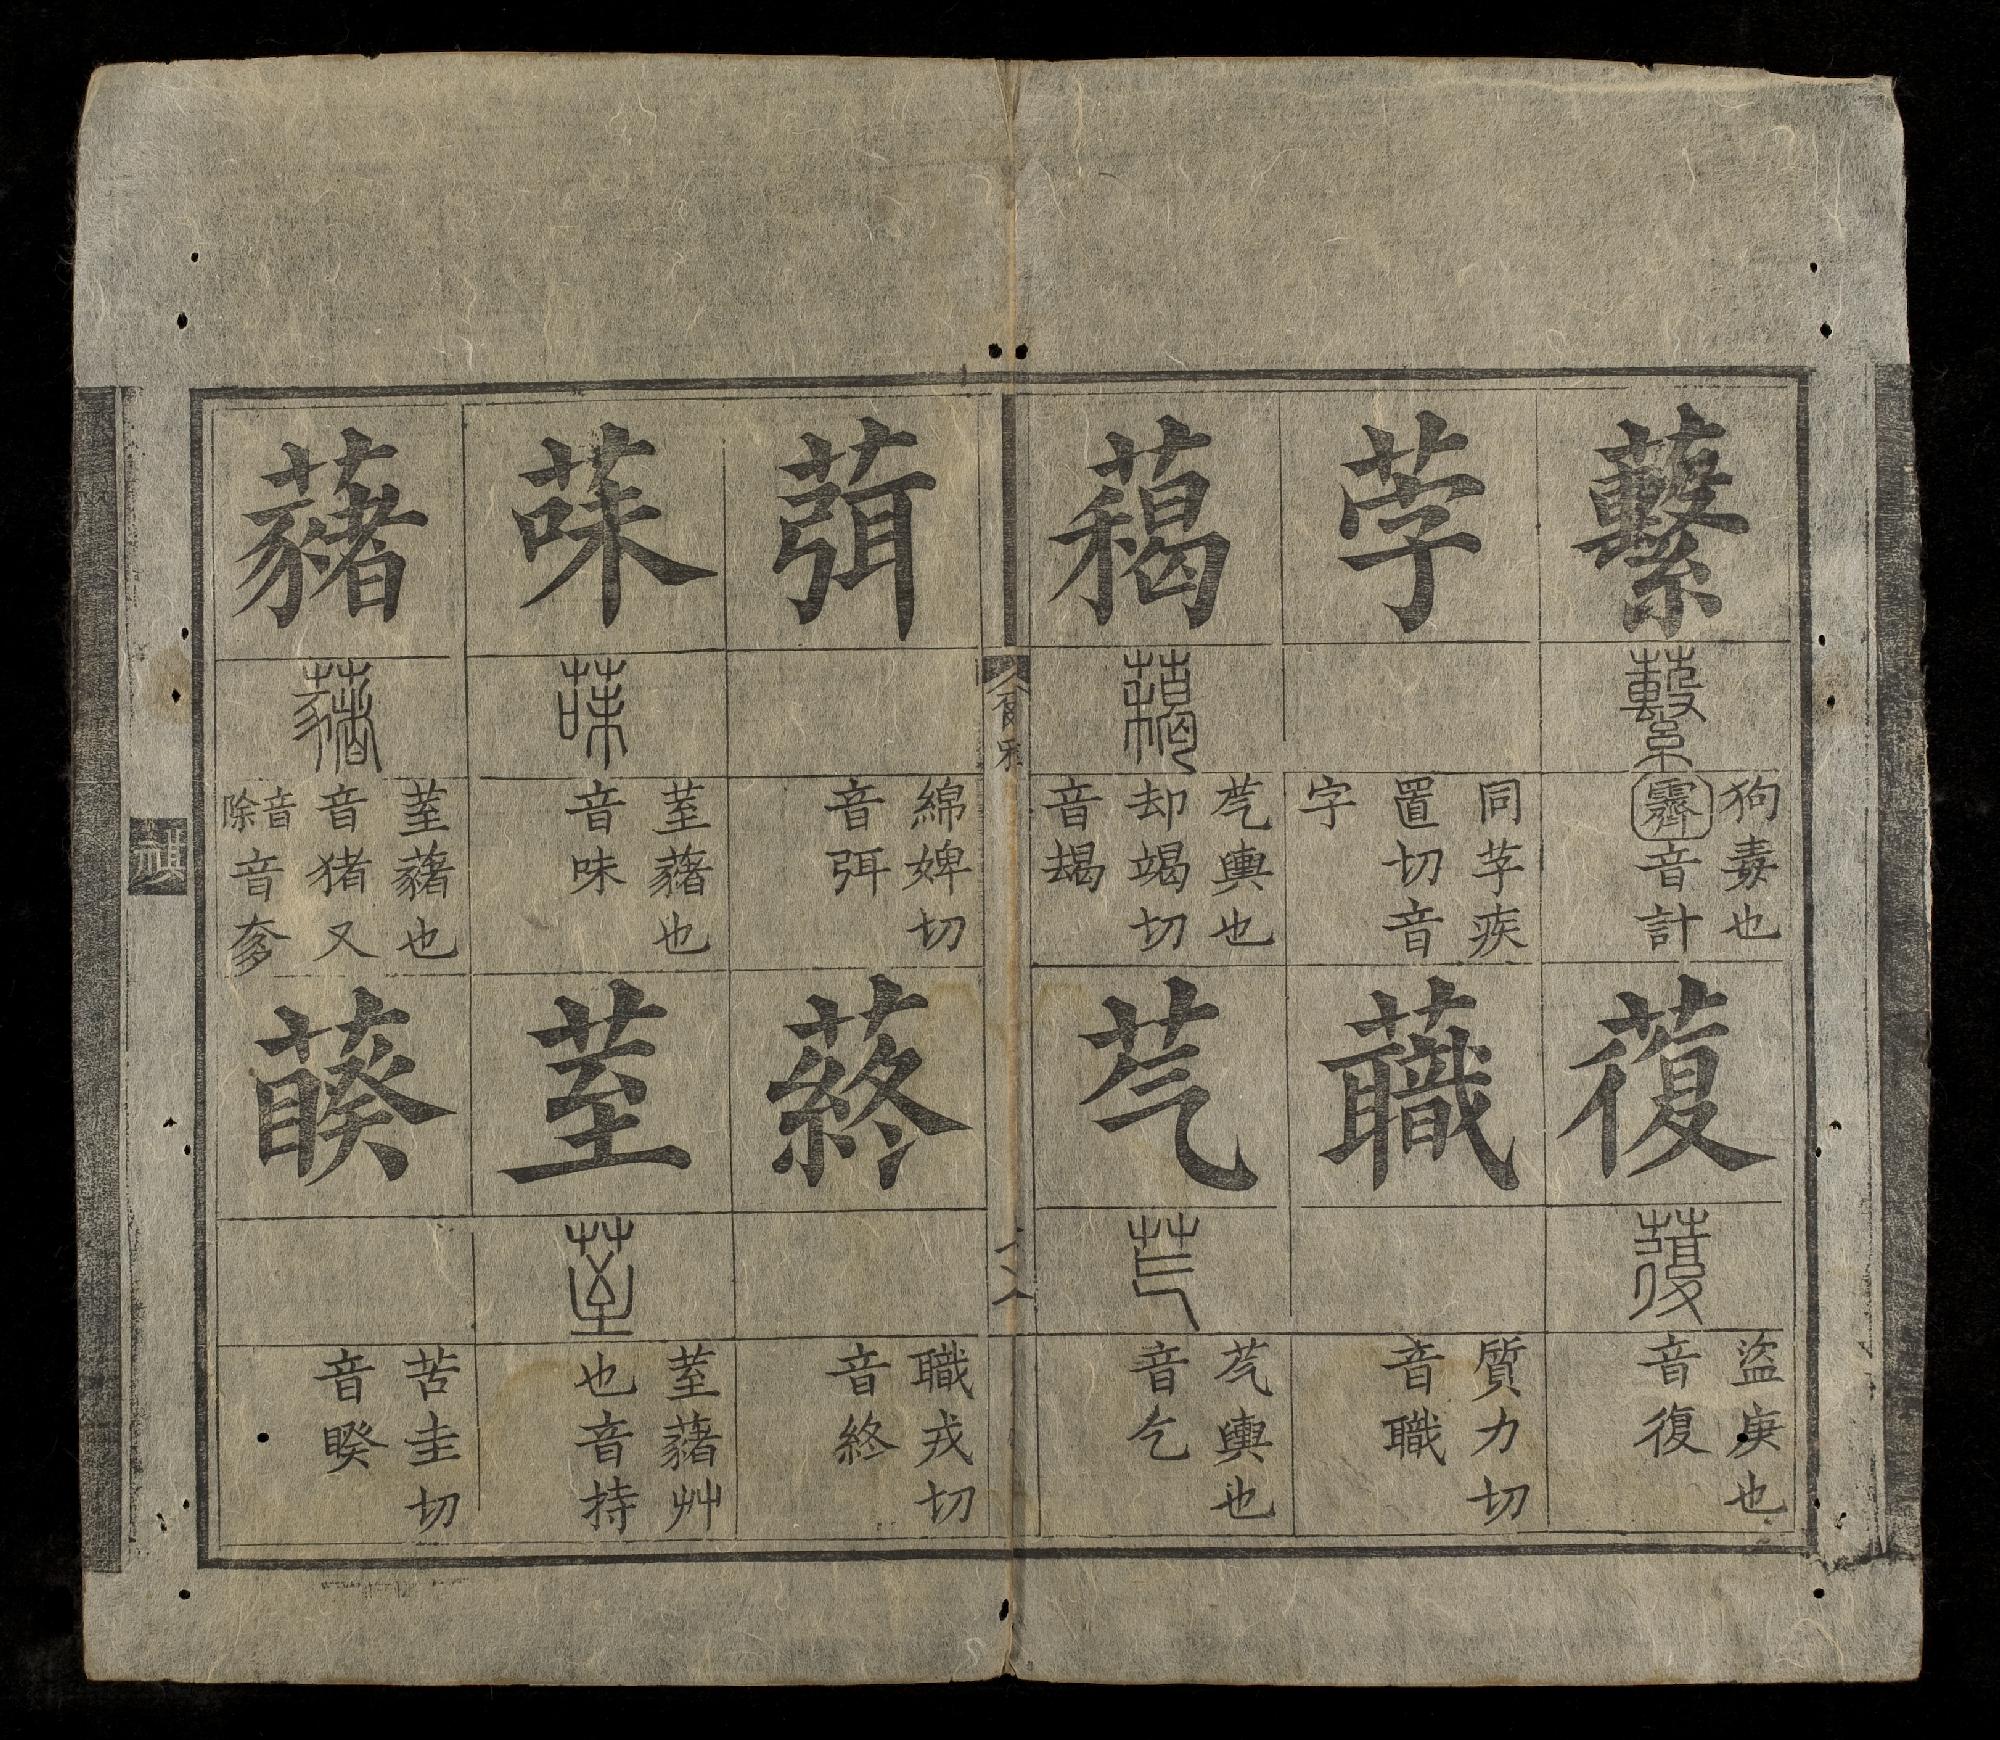 蘻
蘻
狗毒也
霽音計
蕧
蕧
盜庚也
音復
茡
同芓疾
置切音
字
蘵
質力切
音職
藒
藒
芞輿也
却竭切
音朅
芞
芞
芞輿也
音乞
葞
綿婢切
音弭
蔠
職戎切
音終
菋
菋
荎藸也
音味
荎
荎
荎藸艸
也音持
藸
藸
荎藸也
音猪又
音除音奓
藈
苦圭切
音睽